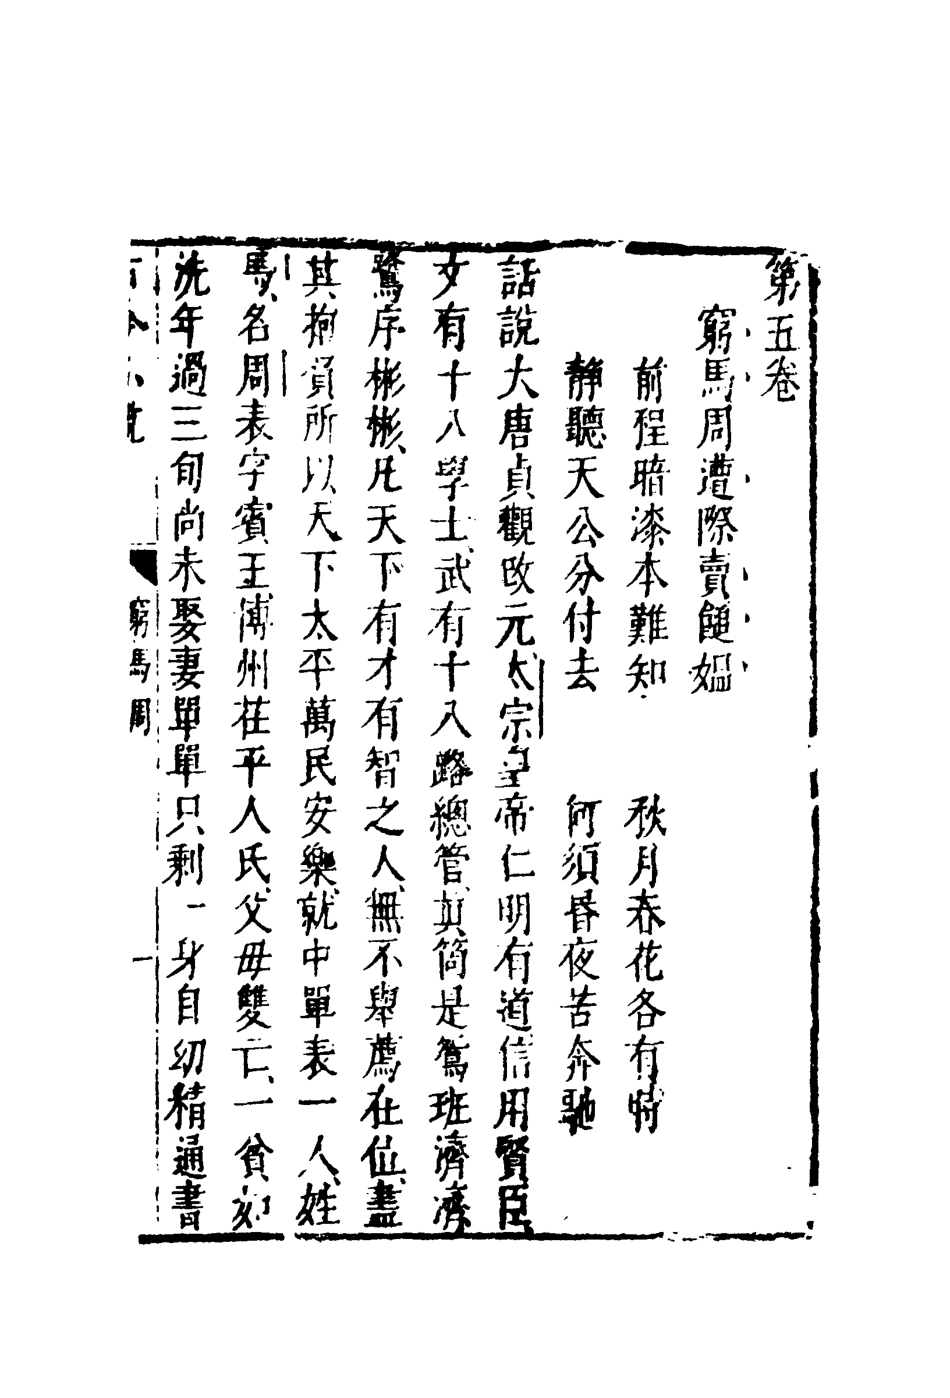 第五卷
窮馬周遭際賣䭔媼
前程暗漆本難知 秋月春花各有時
靜聽天公分付去 何須昏夜苦奔馳
話說大唐貞觀改元太宗皇帝仁明有道信用賢臣
文有十八學士武有十八路總管真箇是鴛班濟濟
鷺序彬彬凡天下有才有智之人無不舉薦在位盡
其抱負所以天下太平萬民安樂就中單表一人姓
馬名周表字賓王博州茌平人氏父母雙亡一貧如
洗年過三旬尚未娶妻單單只剩一身自幼精通書
古今小說 窮馬周 一